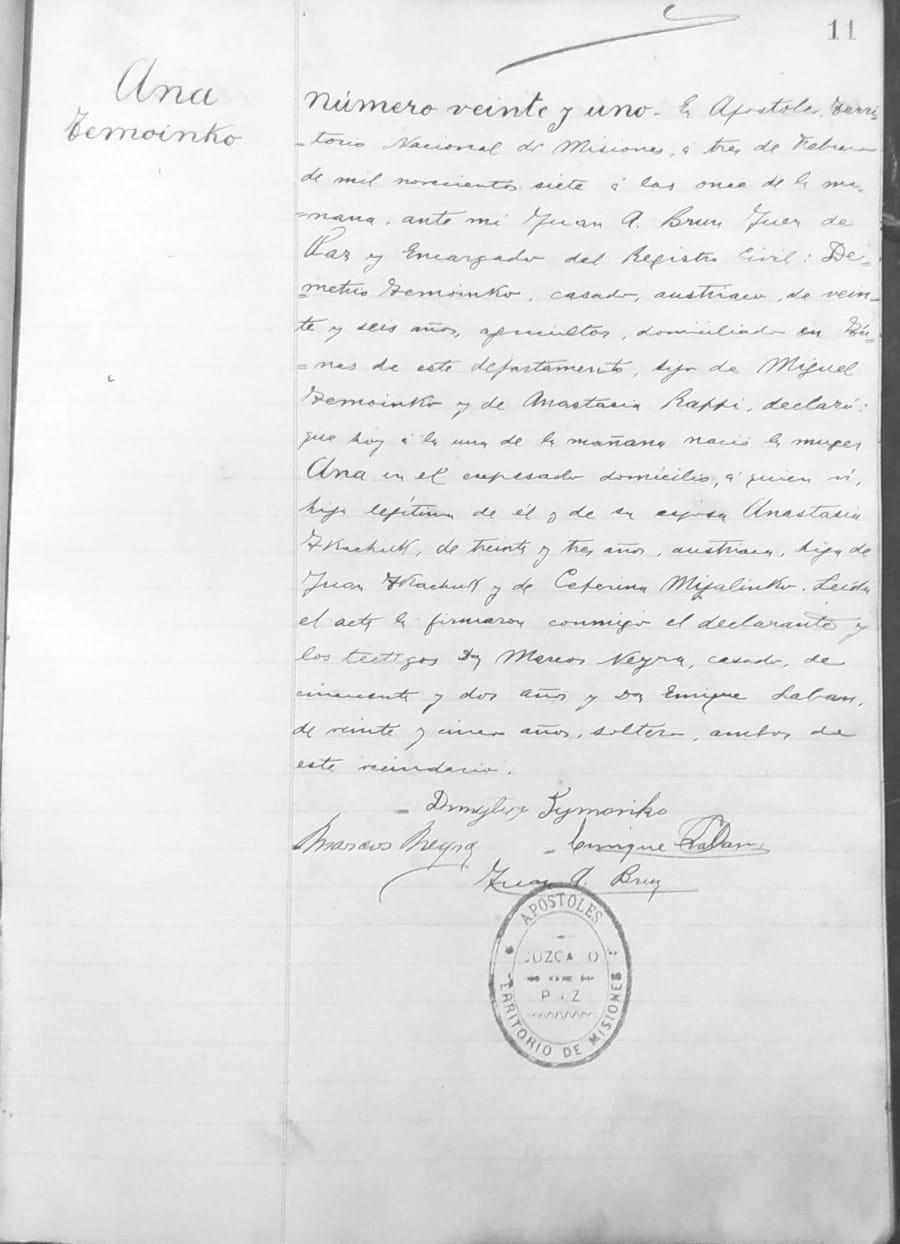 11
Ana
Temoinko
Número veinte y uno. En Apostoles, Terri-
-torio Nacional de Misiones, á tres de Febrero
de mil novecientos siete á las once de la ma-
-ñana, ante mi Juan A. Brun Juez de
Paz y Encargado del Registro Civil: De-
-metrio Temoinko, casado, austriaco, de vein-
te y seis años, agricultor, domiciliado en Tu-
-nas de este departamento, hijo de Miguel
Temoinko y de Anastasia Rappi, declaró:
que hoy á la una de la mañana nació la mujer
Ana en el expresado domicilio, á quien ví,
hija legítima de él y de su esposa Anastasia
Tkachuk, de treinta y tres años, austriaca, hija de
Juan Tkachuk y de Ceferina Mijalinko. Leida
el acta la firmaron conmigo el declarante y
los testigos Dn Marcos Neyra, casado, de
cincuenta y dos años y Dn Enrique Laban,
de veinte y cinco años, soltero, ambos de
este vecindario.
Tymoriko
Marcos Neyra
Enrique Laban
Juan A. Brun
APOSTOLES
JUZGA O
P Z
TERRITORIO DE MISIONES